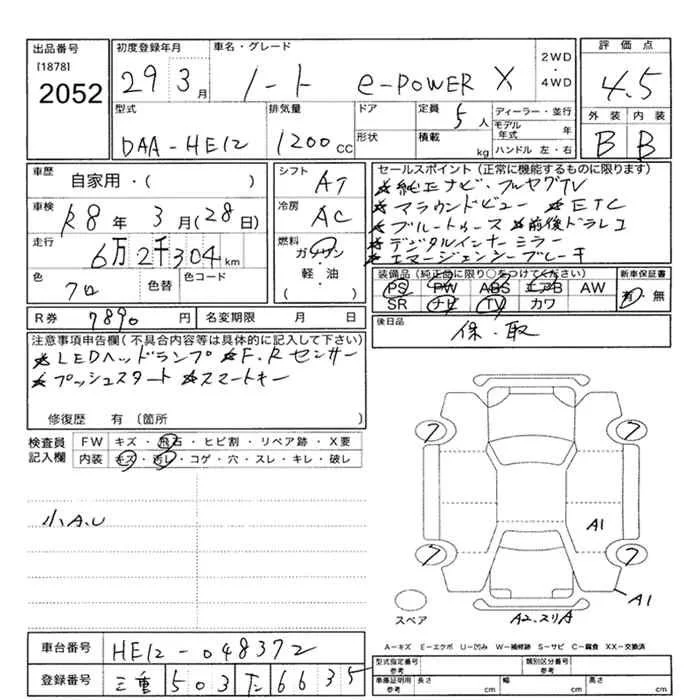 出品番号 初度登録年月 車名・グレード 2WD・4WD 評価点
[1878]
2052 29 3月 ノート e-POWER X 4.5
型式 排気量 ドア 定員 5人 ディーラー・並行 外装 内装
モデル年式 年
DAA-HE12 1200CC 形状 積載 kg ハンドル 左・右 B B
車歴 自家用・( ) シフト AT セールスポイント(正常に機能するものに限ります)
★純正ナビ・フルセグTV
車検 R8年 3月(28日) 冷房 AC ★アラウンドビュー ★ETC
★ブルートゥース ★前後ドラレコ
走行 6万2千304km 燃料 ガソリン・軽・油 ( ) ★デジタルインナーミラー
★エマージェンシーブレーキ
色 クロ 色替 色コード 装備品(純正品に限り○をつけてください) 新車保証書
PS PW ABS エアB AW 有・無
SR ナビ TV カワ
R券 7890円 名変期限 月 日 後日品 保・取
注意事項申告欄(不具合内容等は具体的に記入して下さい)
★LEDヘッドランプ ★F.Rセンサー
★プッシュスタート ★スマートキー
修復歴 有 〔箇所
検査員記入欄 FW キズ・飛石・ヒビ割・リペア跡・X要
内装 キズ・汚レ・コゲ・穴・スレ・キレ・破レ
7 7
小A.U A1
7 7
スペア A2.スリA A1
A－キズ E－エクボ U－凹み W－補修跡 S－サビ C－腐食 XX－交換済
車台番号 HE12-048372 型式指定番号 参考 類別区分番号 参考
登録番号 三重 503 た 6635 車庫証明用 参考 長さ cm 幅 cm 高さ cm